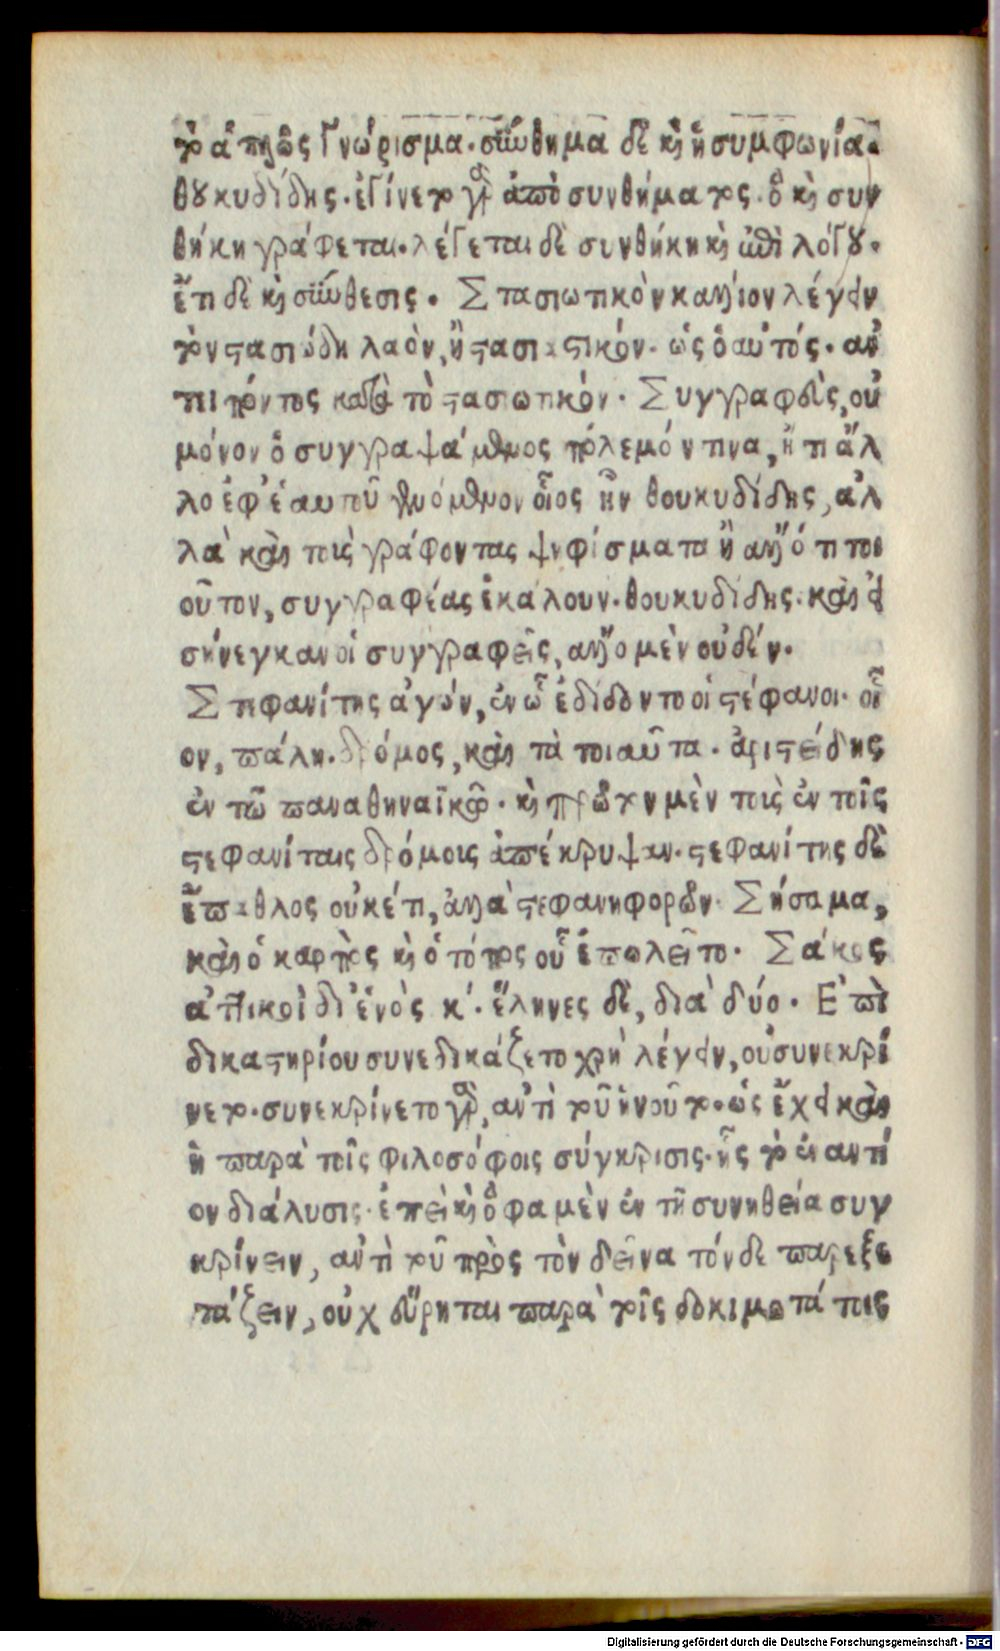 τὸ ἁπλῶς γνώρισμα. σύνθημα δὲ κὴ ἡ συμφωνία.
θουκυδίδης. ἐγίνετο γὰρ ἀπὸ συνθήματος. ὃ κὴ συν
θήκη γράφεται. λέγεται δὲ συνθήκη κὴ ἐπὶ λόγου.
ἔτι δὲ κὴ σύνθεσις. Στασιωτικὸν κάλλιον λέγειν
τὸν στασιώδη λαὸν, ἢ στασιαστικόν. ὡς ὁ αὐτός. ἀν
τιπόντος κατὰ τὸ στασιωτικόν. Συγγραφεὺς, οὐ
μόνον ὁ συγγραψάμενος πόλεμόν τινα, ἤ τι ἄλ
λο ἐφ' ἑαυτοῦ γενόμενον οἷος ἦν θουκυδίδης, ἀλ
λὰ καὶ τοὺς γράφοντας ψηφίσματα ἢ ἄλλό τι τοι
οῦτον, συγγραφέας ἐκάλουν. θουκυδίδης. καὶ εἰ
σήνεγκαν οἱ συγγραφεῖς, ἄλλο μὲν οὐδέν.
Στεφανίτης ἀγών, ἐν ᾧ ἐδίδοντο οἱ στέφανοι. οἷ
ον, πάλη. δρόμος, καὶ τὰ τοιαῦτα. ἀριστείδης
ἐν τῷ παναθηναϊκῷ. κὴ πρώτην μὲν τοὺς ἐν τοῖς
στεφανίταις δρόμοις ἀπέκρυψαν. στεφανίτης δὲ
ἔπαθλος οὐκέτι, ἀλλὰ στεφανηφορῶν. Σήσαμα,
καὶ ὁ καρπὸς κὴ ὁ τόπος οὗ ἐπωλεῖτο. Σάκος
ἀττικοὶ δι' ἑνὸς κ. ἕλληνες δὲ, διὰ δύο. Ἐπὶ
δικαστηρίου συνεδικάζετο χρὴ λέγειν, οὐ συνεκρί
νετο. συνεκρίνετο γὰρ, ἀντὶ τοῦ ἡνοῦτο. ὡς ἔχει καὶ
ἡ παρὰ τοῖς φιλοσόφοις σύγκρισις. ἧς τὸ ἐναντί
ον διάλυσις. ἐπεὶ κὴ ὅ φαμὲν ἐν τῇ συνηθεία συγ
κρίνειν, ἀντὶ τοῦ πρὸς τὸν δεῖνα τόνδε παρεξε
τάζειν, οὐχ εὕρηται παρὰ τοῖς δοκιμωτάτοις